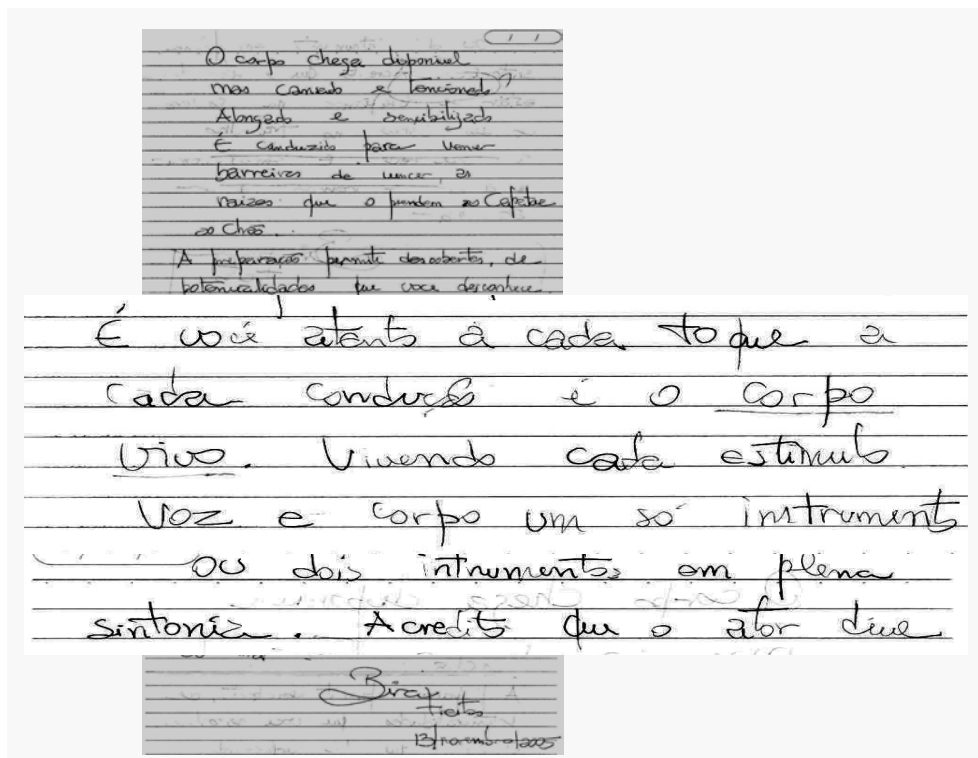 O corpo chega disponivel
mas cansado e tencionado
Alongado e sensibilizado
É conduzido para vencer
barreiras de vencer, as
raizes que o prendem ao
ao Chão.
A preparação permite descobertas, de
potencialidades que voce desconhece.
É você atento à cada toque a
cada condução é o corpo
vivo. Vivendo cada estimulo
Voz e corpo um só instrumento
ou dois intrumentos em plena
sintonia. Acredito que o ator
Bira
13/novembro/2005